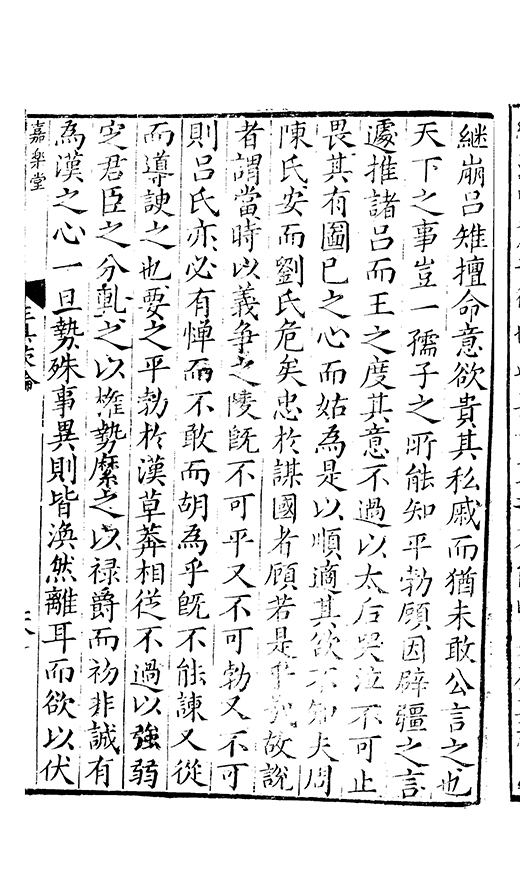 継崩吕雉擅命意欲貴其私戚而猶未敢公言之也
天下之事豈一孺子之所能知平勃顧因辟疆之言
遽推諸吕而王之度其意不過以太后哭泣不可止
畏其有圖已之心而姑為是以順適其欲不知夫周
陳氏安而劉氏危矣忠於謀國者顧若是乎哉故說
者謂當時以義争之陵旣不可平又不可勃又不可
則吕氏亦必有惮而不敢而胡為乎旣不能諫又從
而導諛之也要之平勃於漢草莾相従不過以強弱
定君臣之分乹之以權勢縻之以禄爵而初非誠有
為漢之心一旦勢殊事異則皆渙然離耳而欲以伏
嘉樂堂